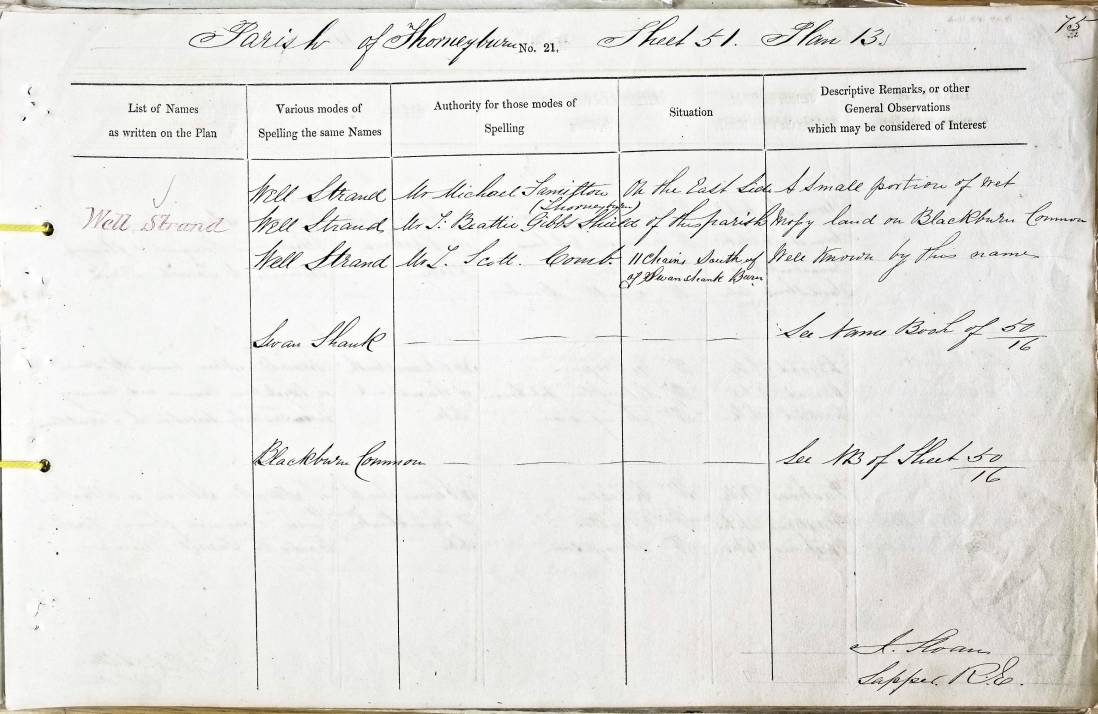 75
Parish of Thorneyburn No. 21. Sheet 51. Plan 13.
List of Names
as written on the Plan
Various modes of
Spelling the same Names
Authority for those modes of
Spelling
Situation
Descriptive Remarks, or other
General Observations
which may be considered of Interest
Well Strand
Well Strand
Well Strand
Well Strand
Mr Michael Hamilton
(Thorneyburn)
Mr T. Beattie Gibbs Shield
Mr T. Scott. Comb
On the East Side
of this parish
11 Chains South of
of Swanshank Burn
A Small portion of wet
Mossy land on Blackburn Common
Well Known by this name
Swan Shank
See Name Book of 50/16
Blackburn Common
See NB of Sheet 50/16
J. Sloan
Sapper. R.E.